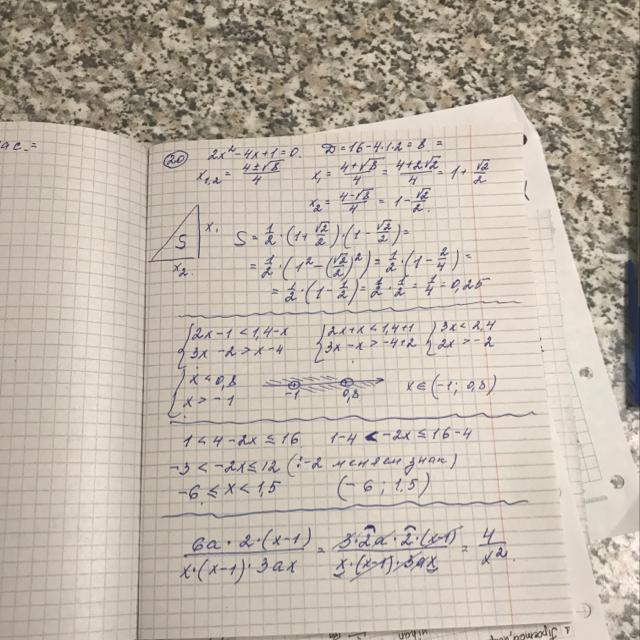 ac. =
20 2x²-4x+1=0. D=16-4·1·2=8 =
x₁,₂ = (4±√8)/4 x₁ = (4+√8)/4 = (4+2√2)/4 = 1+ √2/2
x₂ = (4-√8)/4 = 1- √2/2.
S x₁ x₂
S = 1/2 · (1+ √2/2) (1- √2/2) =
= 1/2 · (1² - (√2/2)²) = 1/2 · (1- 2/4) =
= 1/2 · (1- 1/2) = 1/2 · 1/2 = 1/4 = 0,25
{2x-1<1,4-x {2x+x<1,4+1 {3x<2,4
{3x-2>x-4 {3x-x>-4+2 {2x>-2
{x<0,8
{x>-1 -1 0,8 x∈(-1; 0,8)
1<4-2x≤16 1-4<-2x≤16-4
-3<-2x≤12 (:-2 меняем знак)
-6≤x<1,5 (-6; 1,5)
(6a·2·(x-1))/(x·(x-1)·3ax) = (3·2a·2·(x-1))/(x·(x-1)·3ax) = 4/x²